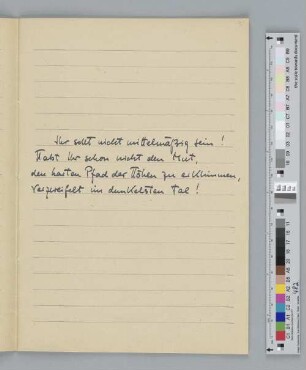 Ihr sollt nicht mittelmäßig sein!
Habt Ihr schon nicht den Mut,
den harten Pfad der Höhen zu erklimmen,
verzweifelt im dunkelsten Tal!